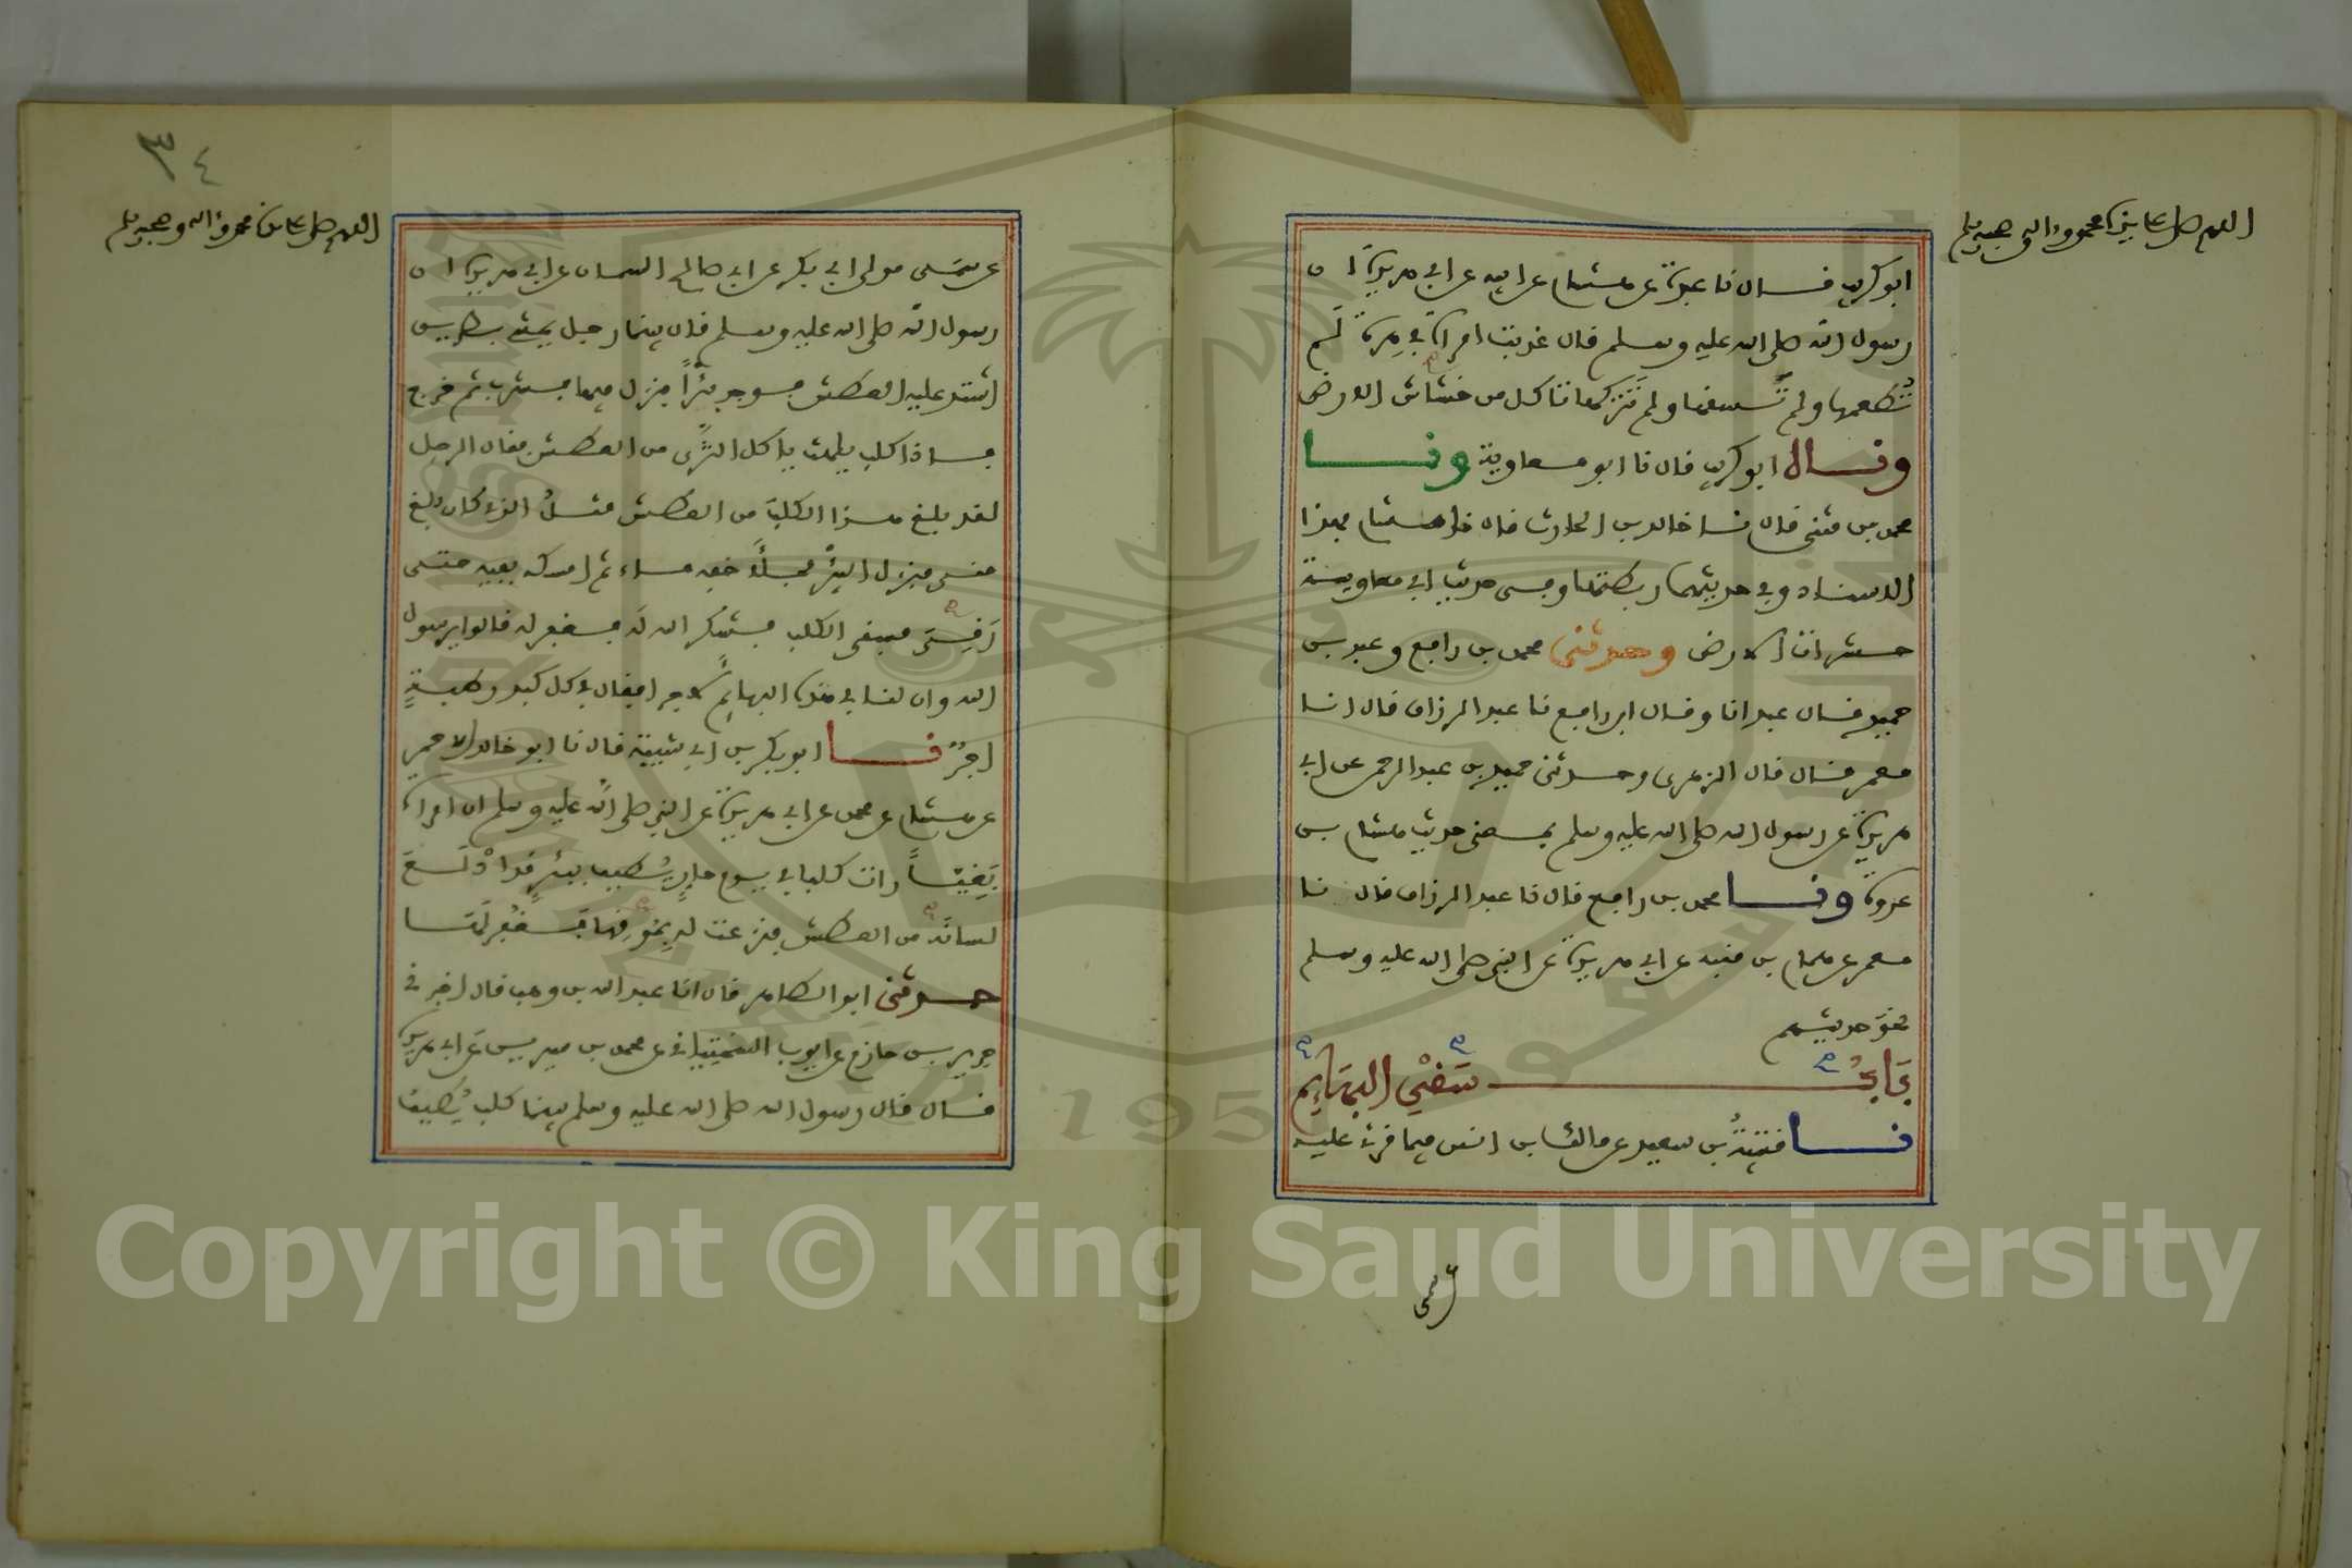 اللهم صل على سيدنا محمد وءاله وصحبه وسلم
ابو كريب فال نا عبدة عن هشام عن ابيه عن ابي هريرة ان
رسول الله صلى الله عليه وسلم فال عذبت امراة في هرة لم
تُطعمها ولم تسفها ولم تتركها تاكل من خشاش الارض
وفال ابو كريب فال نا ابو معاوية ونا
محمد بن مثنى فال نا خالد بن الحارث فال نا هشام بهذا
الاسناد وفي حديثهما ربطتها وفي حديث ابي معاوية
حشرات الارض وحدثني محمد بن رافع وعبد بن
حميد فال عبد انا وفال ابن رافع نا عبد الرزاق فال انا
معمر فال فال الزهري وحدثني حميد بن عبد الرحمن عن ابي
هريرة عن رسول الله صلى الله عليه وسلم بمعنى حديث هشام بن
عروة ونا محمد بن رافع فال نا عبد الرزاق فال نا
معمر عن همام بن منبه عن ابي هريرة عن النبي صلى الله عليه وسلم
نحو حديثهم
بَابُ سَفْيِ البهَائِم
نا فتيبةُ بن سعيد عن مالك بن انس فيما فرئ عليه
عن سمي
٣٤
اللهم صل على سيدنا محمد وءاله وصحبه وسلم
عن سُمَي مولى ابي بكر عن ابي صالح السمان عن ابي هريرة ان
رسول الله صلى الله عليه وسلم فال بينما رجل يمشي بطريق
اشتد عليه العطش فوجد بئراً فنزل فيها فشرب ثم خرج
فاذا كلب يلهث ياكل الثَّرى من العطش ففال الرجل
لفد بلغ هذا الكلبَ من العطش مثلُ الذي كان بلغ
مني فنزل البئرَ فملأ خفه ماء ثم امسكه بفيه حتى
رَفِيَ فسفى الكلب فشكر الله لَه فغفر له فالوا يرسول
الله وان لنا في هذه البهائم لأجرا ففال في كل كبد رطبةٍ
اجرٌ نا ابو بكر بن ابي شيبة فال نا ابو خالد الاحمر
عن هشام عن محمد عن ابي هريرة عن النبي صلى الله عليه وسلم ان امراة
بَغِيّاً رات كلبا في يوم حارٍ يُطيف ببئرٍ فد ادْلَعَ
لسانَه من العطش فنزعت له بمُوفِها فغُفِرَ لَهَا
حدثني ابو الطاهر فال انا عبد الله بن وهب فال اخبرني
جرير بن حازم عن ايوب السختياني عن محمد بن سيرين عن ابي هريرة
فال فال رسول الله صلى الله عليه وسلم بينما كلب يُطيف
Copyright © King Saud University
1957